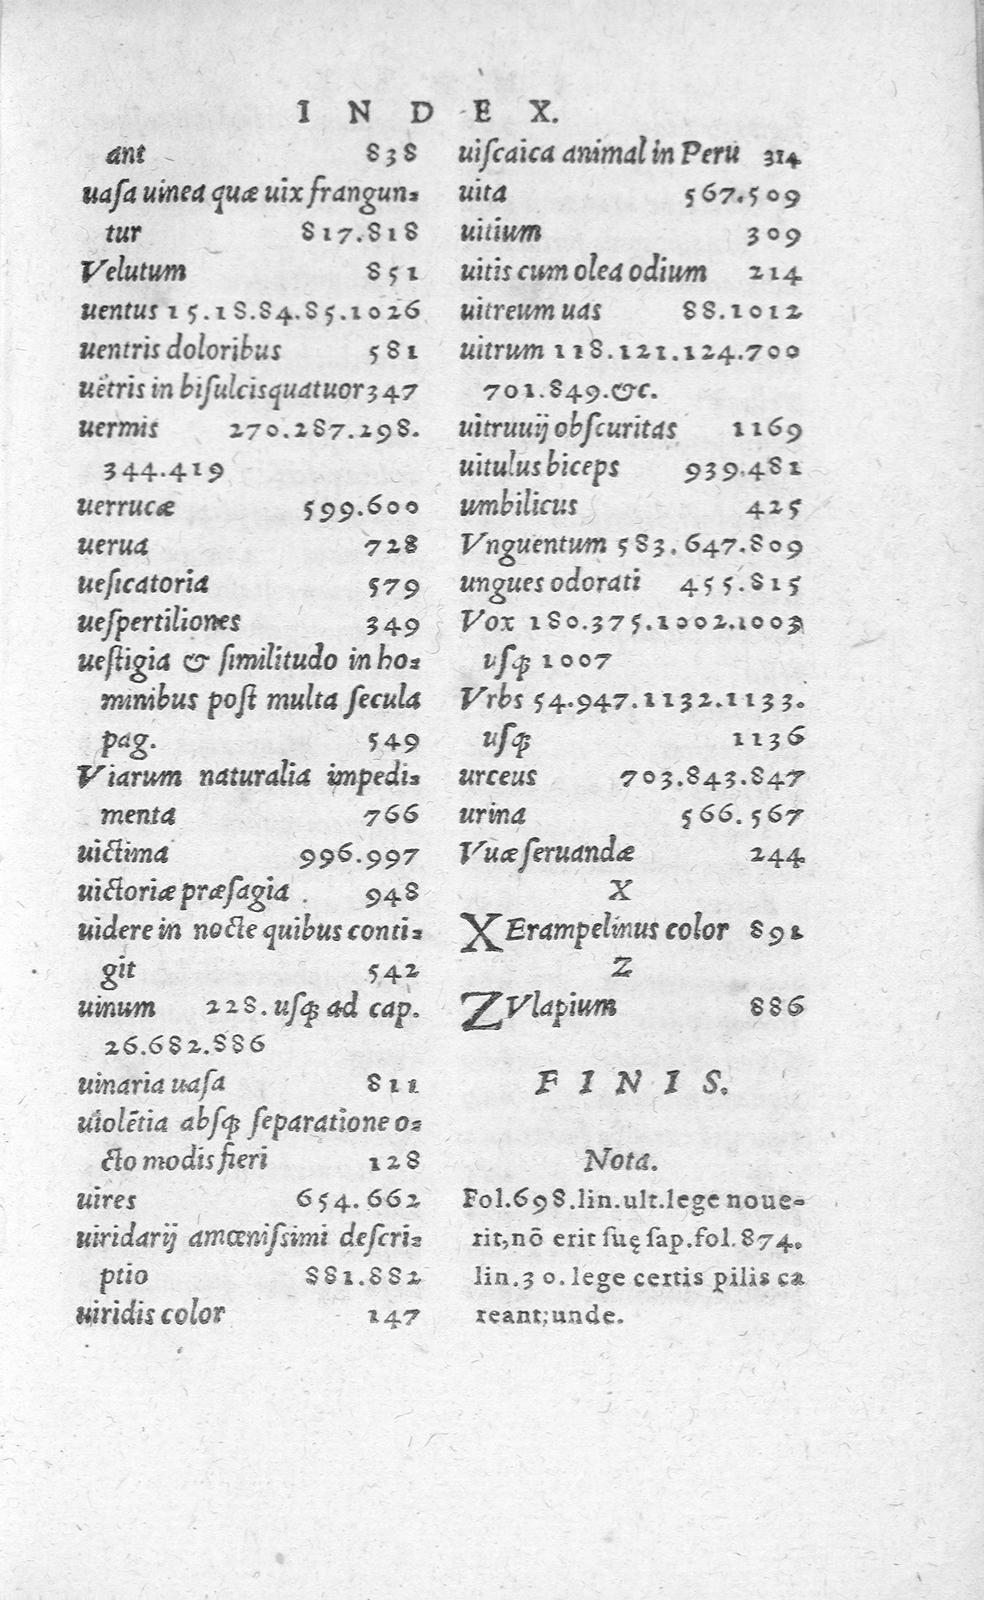 INDEX.
ant 838
uaſa uinea quæ uix frangun-
tur 817.818
Velutum 851
uentus 15.18.84.85.1026
uentris doloribus 581
uẽtris in biſulcis quatuor 347
uermis 270.287.298.
344.419
uerrucæ 599.600
uerua 728
ueſicatoria 579
ueſpertiliones 349
ueſtigia & ſimilitudo in ho-
minibus poſt multa ſecula
pag. 549
Viarum naturalia impedi-
menta 766
uictima 996.997
uictoriæ præſagia 948
uidere in nocte quibus conti-
git 542
uinum 228. uſꝗ ad cap.
26.682.886
uinaria uaſa 811
uiolẽtia abſꝗ ſeparatione o-
cto modis fieri 128
uires 654.662
uiridarij amœniſſimi deſcri-
ptio 881.882
uiridis color 147
uiſcaica animal in Peru 314
uita 567.509
uitium 309
uitis cum olea odium 214
uitreum uas 88.1012
uitrum 118.121.124.700
701.849.&c.
uitruuij obſcuritas 1169
uitulus biceps 939.481
umbilicus 425
Vnguentum 583.647.809
ungues odorati 455.815
Vox 180.375.1002.1003
uſꝗ 1007
Vrbs 54.947.1132.1133.
uſꝗ 1136
urceus 703.843.847
urina 566.567
Vuæ ſeruandæ 244
X
XErampelinus color 891
Z
ZVlapium 886
FINIS.
Nota.
Fol.698.lin.ult.lege noue-
rit,nõ erit ſuę ſap.fol.874.
lin.30.lege certis pilis ca
reant;unde.